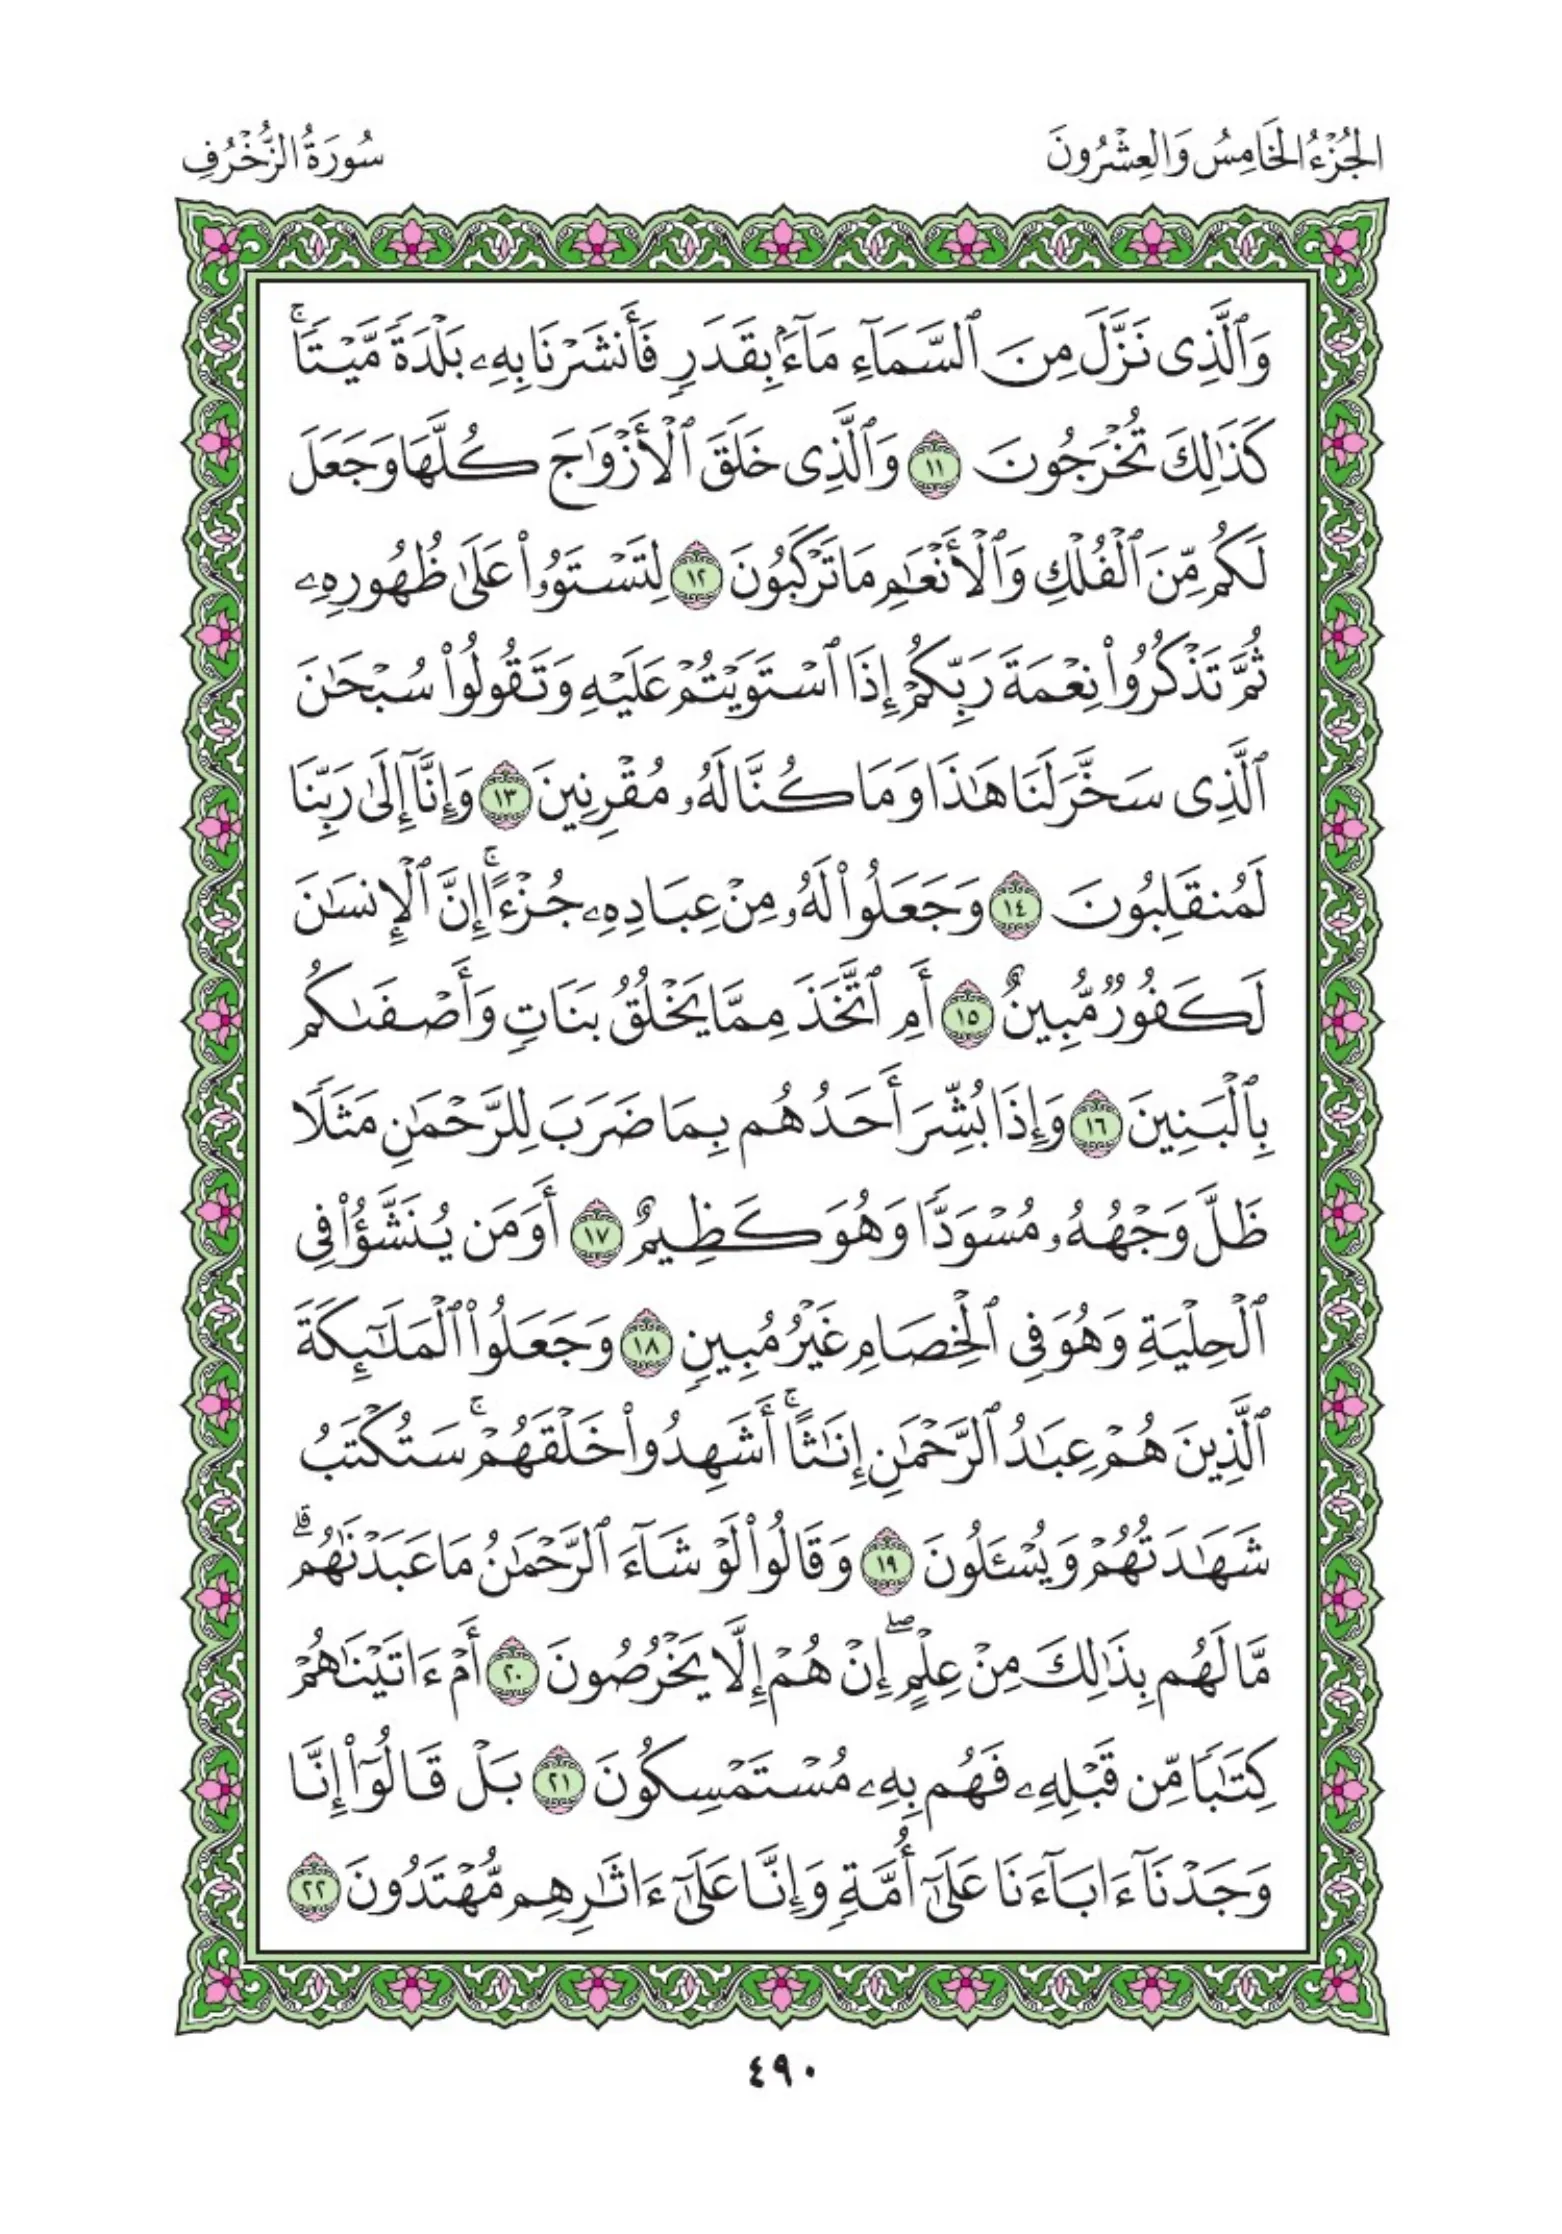 الجُزْءُ الخَامِسُ وَالعِشْرُونَ
سُورَةُ الزُّخْرُفِ
وَٱلَّذِى نَزَّلَ مِنَ ٱلسَّمَآءِ مَآءًۢ بِقَدَرٍ فَأَنشَرْنَا بِهِۦ بَلْدَةً مَّيْتًاۚ
كَذَٰلِكَ تُخْرَجُونَ ١١ وَٱلَّذِى خَلَقَ ٱلْأَزْوَٰجَ كُلَّهَا وَجَعَلَ
لَكُم مِّنَ ٱلْفُلْكِ وَٱلْأَنْعَٰمِ مَا تَرْكَبُونَ ١٢ لِتَسْتَوُۥا۟ عَلَىٰ ظُهُورِهِۦ
ثُمَّ تَذْكُرُوا۟ نِعْمَةَ رَبِّكُمْ إِذَا ٱسْتَوَيْتُمْ عَلَيْهِ وَتَقُولُوا۟ سُبْحَٰنَ
ٱلَّذِى سَخَّرَ لَنَا هَٰذَا وَمَا كُنَّا لَهُۥ مُقْرِنِينَ ١٣ وَإِنَّآ إِلَىٰ رَبِّنَا
لَمُنقَلِبُونَ ١٤ وَجَعَلُوا۟ لَهُۥ مِنْ عِبَادِهِۦ جُزْءًاۚ إِنَّ ٱلْإِنسَٰنَ
لَكَفُورٌ مُّبِينٌ ١٥ أَمِ ٱتَّخَذَ مِمَّا يَخْلُقُ بَنَاتٍ وَأَصْفَىٰكُم
بِٱلْبَنِينَ ١٦ وَإِذَا بُشِّرَ أَحَدُهُم بِمَا ضَرَبَ لِلرَّحْمَٰنِ مَثَلًا
ظَلَّ وَجْهُهُۥ مُسْوَدًّا وَهُوَ كَظِيمٌ ١٧ أَوَمَن يُنَشَّؤُا۟ فِى
ٱلْحِلْيَةِ وَهُوَ فِى ٱلْخِصَامِ غَيْرُ مُبِينٍ ١٨ وَجَعَلُوا۟ ٱلْمَلَٰٓئِكَةَ
ٱلَّذِينَ هُمْ عِبَٰدُ ٱلرَّحْمَٰنِ إِنَٰثًاۚ أَشَهِدُوا۟ خَلْقَهُمْۚ سَتُكْتَبُ
شَهَٰدَتُهُمْ وَيُسْـَٔلُونَ ١٩ وَقَالُوا۟ لَوْ شَآءَ ٱلرَّحْمَٰنُ مَا عَبَدْنَٰهُمۗ
مَّا لَهُم بِذَٰلِكَ مِنْ عِلْمٍۖ إِنْ هُمْ إِلَّا يَخْرُصُونَ ٢٠ أَمْ ءَاتَيْنَٰهُمْ
كِتَٰبًا مِّن قَبْلِهِۦ فَهُم بِهِۦ مُسْتَمْسِكُونَ ٢١ بَلْ قَالُوٓا۟ إِنَّا
وَجَدْنَآ ءَابَآءَنَا عَلَىٰٓ أُمَّةٍ وَإِنَّا عَلَىٰٓ ءَاثَٰرِهِم مُّهْتَدُونَ ٢٢
٤٩٠